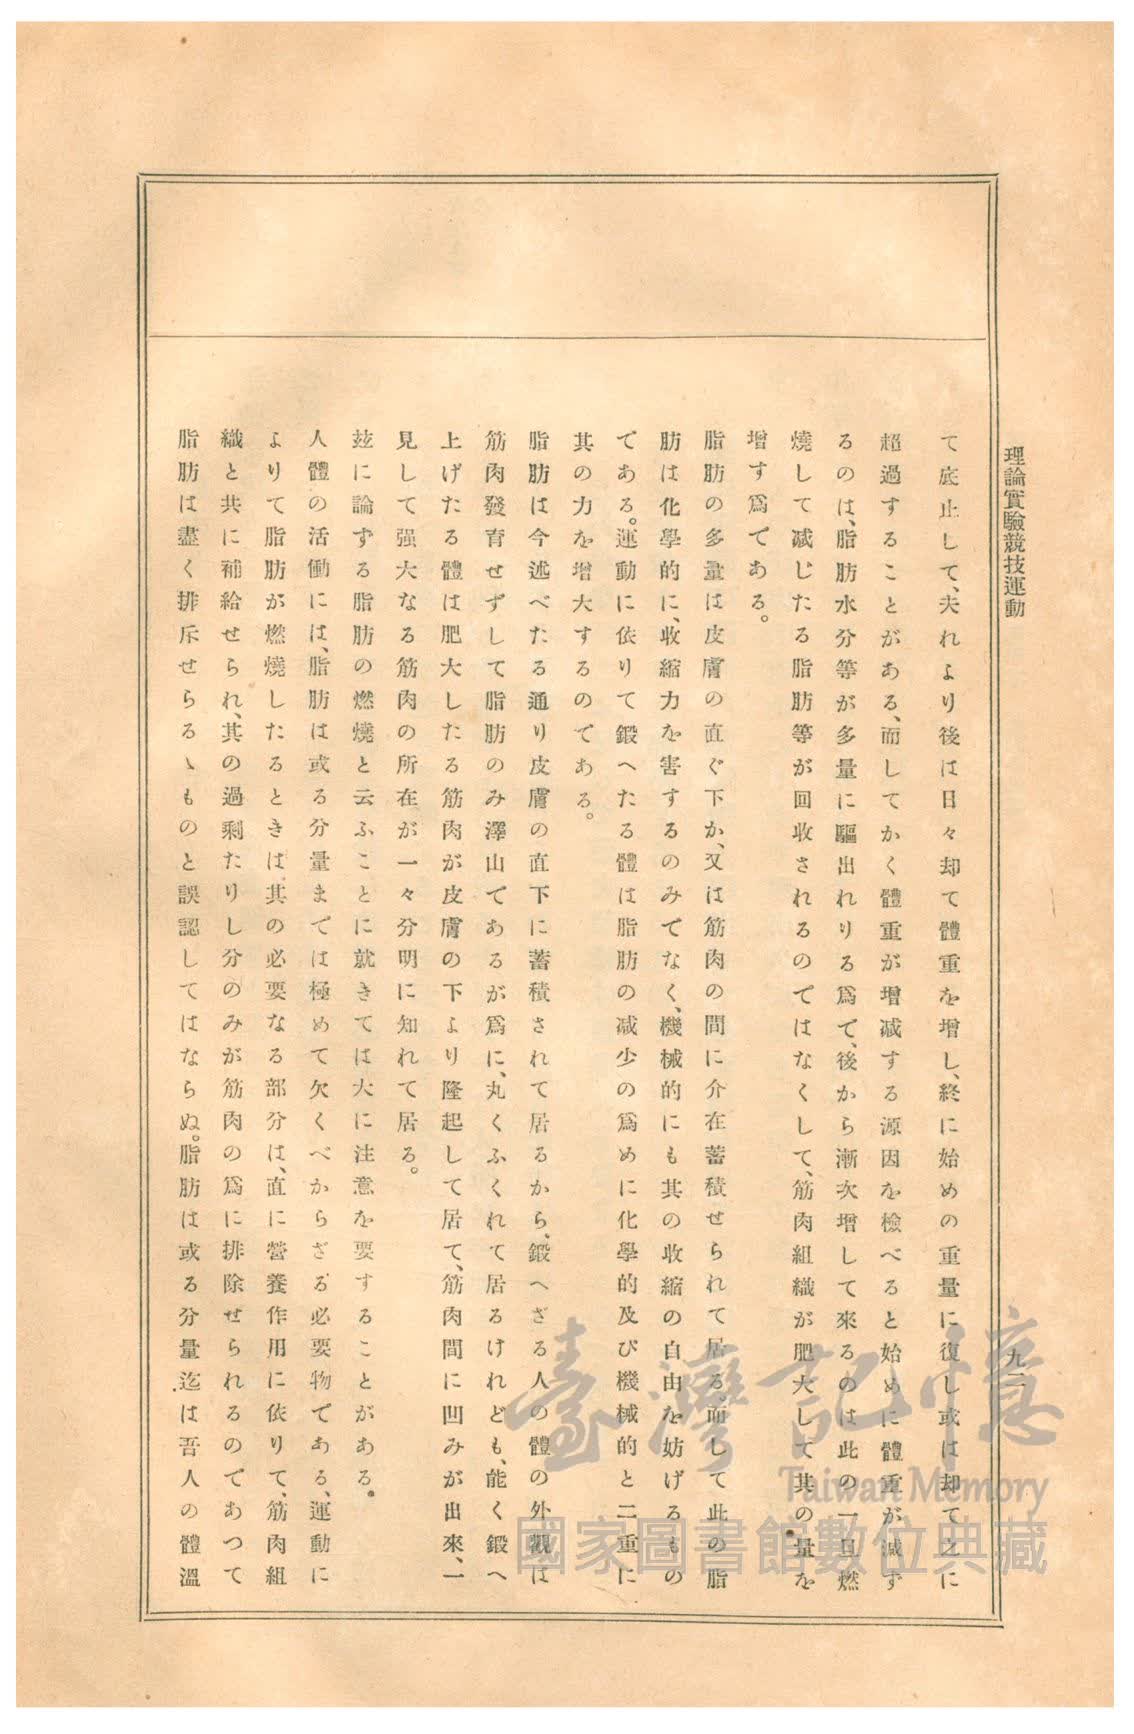 理論實驗競技運動
九二
て底止して、夫れより後は日々却て體重を增し、終に始めの重量に復し或は却て之に
超過することがある、而してかく體重が增減する源因を檢べると始めに體重が減ず
るのは、脂肪水分等が多量に驅出れりる爲で、後から漸次增して來るのは此の一旦燃
燒して减じたる脂肪等が回收されるのではなくして、筋肉組織が肥大して其の量を
增す爲である。
脂肪の多量は皮膚の直ぐ下か、又は筋肉の間に介在蓄積せられて居る。而して此の脂
肪は化學的に、收縮力を害するのみでなく、機械的にも其の收縮の自由を妨げるもの
である。運動に依りて鍛へたる體は脂肪の减少の爲めに化學的及び機械的と二重に
其の力を增大するのである。
脂肪は今述べたる通り皮膚の直下に蓄積されて居るから、鍛へざる人の體の外觀は
筋肉發育せずして脂肪のみ澤山であるが爲に、丸くふくれて居るけれども、能く鍛へ
上げたる體は肥大したる筋肉が皮膚の下より隆起して居て、筋肉間に凹みが出來、一
見して强大なる筋肉の所在が一々分明に知れて居る。
玆に論ずる脂肪の燃燒と云ふことに就きては大に注意を要することがある。
人體の活働には、脂肪は或る分量までは極めて欠くべからざる必要物である、運動に
よりて脂肪が燃燒したるときは其の必要なる部分は、直に營養作用に依りて、筋肉組
織と共に補給せられ、其の過剩たりし分のみが筋肉の爲に排除せられるのであつて
脂肪は盡く排斥せらるゝものと誤認してはならぬ。脂肪は或る分量迄は吾人の體溫
臺灣記憶
Taiwan Memory
國家圖書館數位典藏